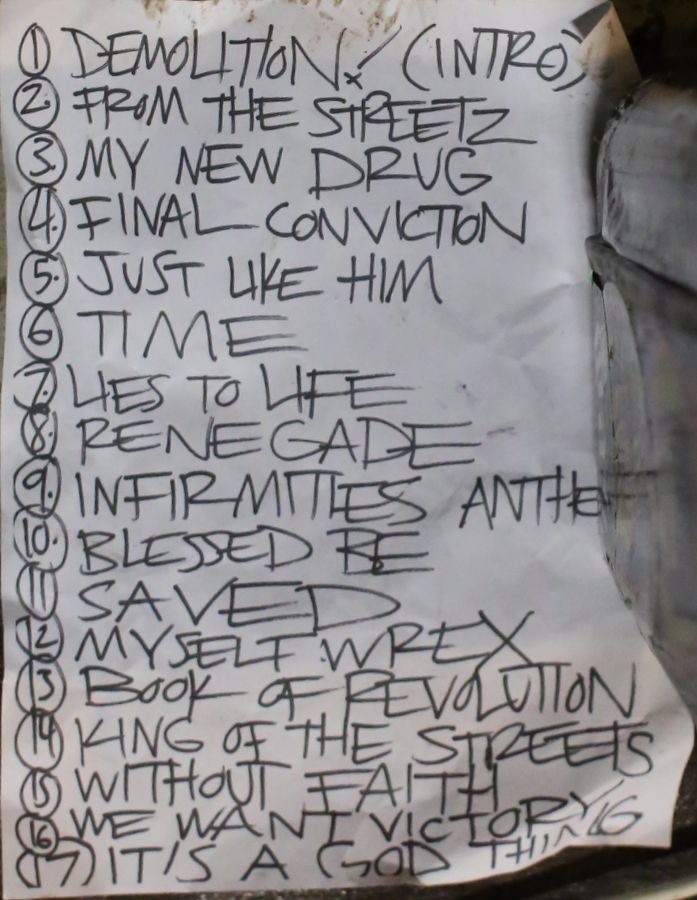 1 DEMOLITION! (INTRO)
2. FROM THE STREETZ
3. MY NEW DRUG
4. FINAL CONVICTION
5. JUST LIKE HIM
6 TIME
7. LIES TO LIFE
8. RENEGADE
9. INFIRMITIES ANTHE
10. BLESSED BE
11 SAVED
12 MYSELF WREX
13 BOOK OF REVOLUTION
14 KING OF THE STREETS
15 WITHOUT FAITH
16 WE WANT VICTORY
17) IT'S A GOD THING